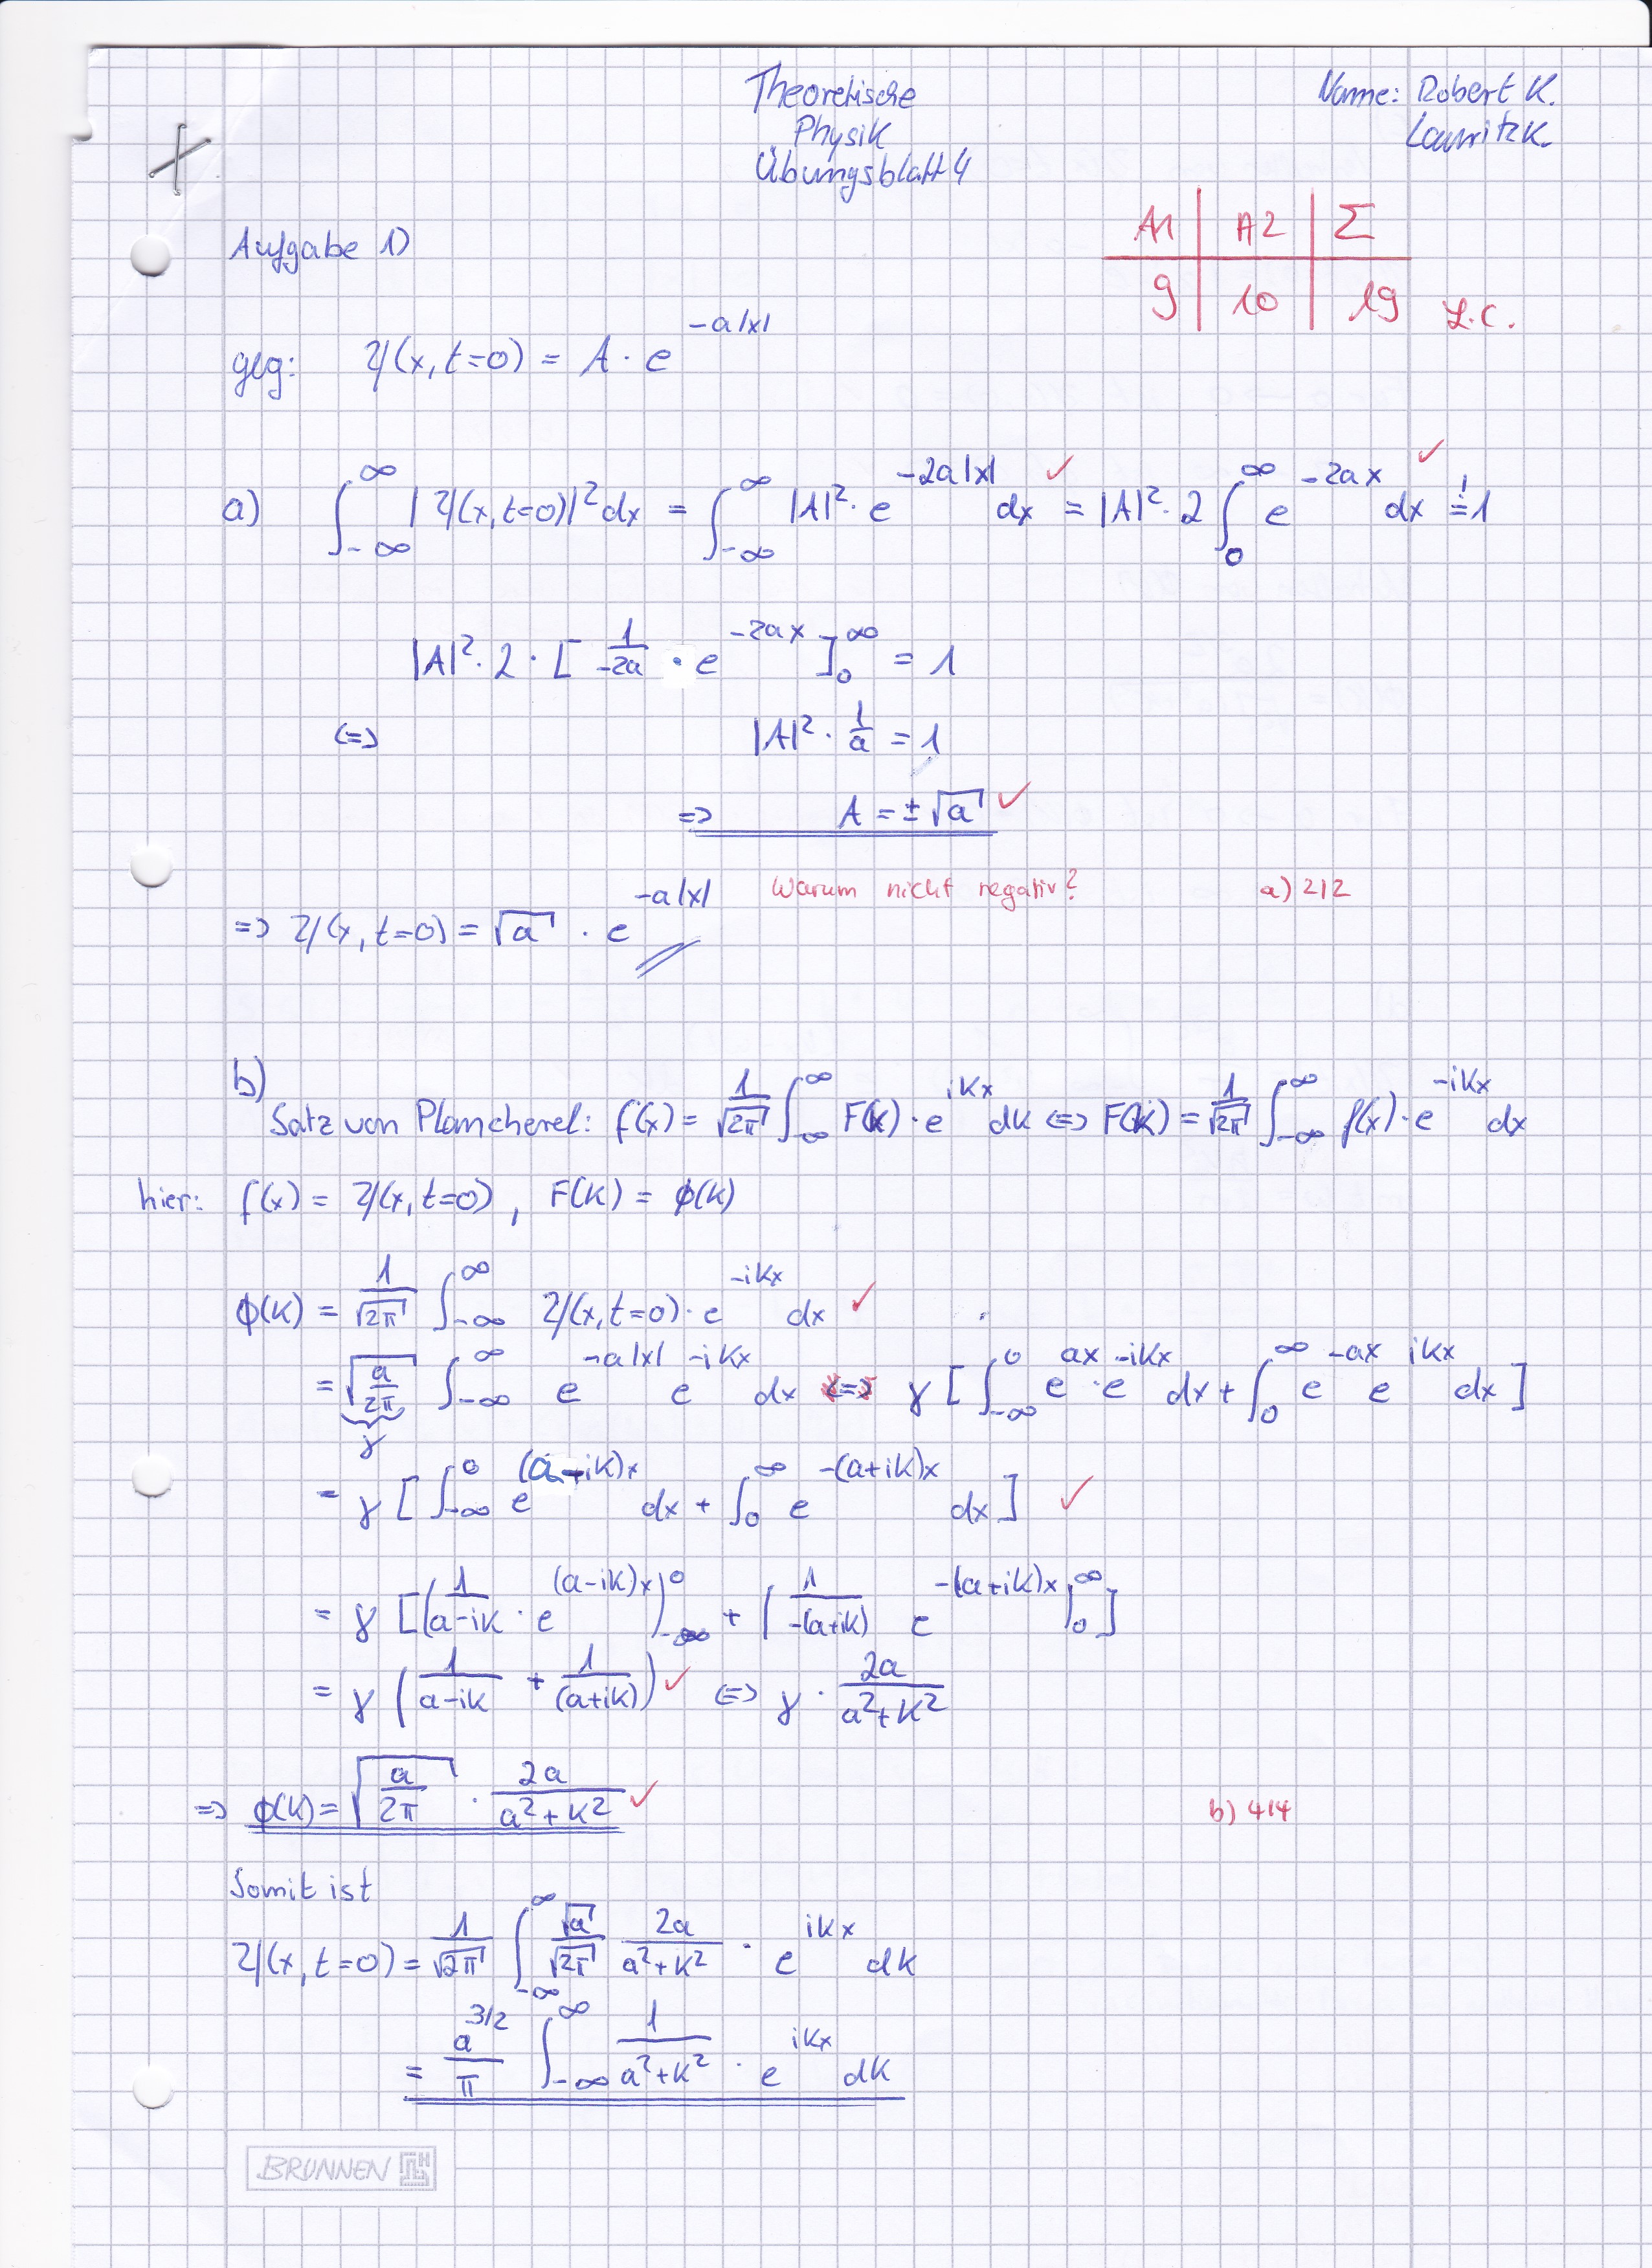 Theoretische
Physik
Übungsblatt 4
Name: Robert K.
Lauritz K.
A1 | A2 | Σ
9 | 10 | 19 L.C.
Aufgabe 1)
geg: Ψ(x, t=0) = A · e^{-a|x|}
a) ∫_{-∞}^{∞} |Ψ(x,t=0)|² dx = ∫_{-∞}^{∞} |A|² · e^{-2a|x|} dx ✓ = |A|² · 2 ∫_0^∞ e^{-2ax} dx ✓ =! 1
|A|² · 2 · [ 1/(-2a) · e^{-2ax} ]_0^∞ = 1
(=) |A|² · 1/a = 1
=> A = ± √a ✓
=> Ψ(x, t=0) = √a · e^{-a|x|} Warum nicht negativ? a) 2/2
b)
Satz von Plancherel: f(x) = 1/√2π ∫_{-∞}^{∞} F(k) · e^{ikx} dk <=> F(k) = 1/√2π ∫_{-∞}^{∞} f(x) · e^{-ikx} dx
hier: f(x) = Ψ(x, t=0) , F(k) = ϕ(k)
ϕ(k) = 1/√2π ∫_{-∞}^{∞} Ψ(x,t=0) · e^{-ikx} dx ✓
= √(a/2π) ∫_{-∞}^{∞} e^{-a|x|} e^{-ikx} dx <=> γ [ ∫_{-∞}^0 e^{ax} · e^{-ikx} dx + ∫_0^∞ e^{-ax} e^{ikx} dx ]
γ
= γ [ ∫_{-∞}^0 e^{(a-ik)x} dx + ∫_0^∞ e^{-(a+ik)x} dx ] ✓
= γ [ ( 1/(a-ik) · e^{(a-ik)x} )_{-∞}^0 + ( 1/(-(a+ik)) e^{-(a+ik)x} )_0^∞ ]
= γ ( 1/(a-ik) + 1/(a+ik) ) ✓ <=> γ · 2a/(a²+k²)
=> ϕ(k) = √(a/2π) · 2a/(a²+k²) ✓ b) 4/4
Somit ist
Ψ(x, t=0) = 1/√2π ∫_{-∞}^{∞} √a/√2π 2a/(a²+k²) · e^{ikx} dk
= a^{3/2}/π ∫_{-∞}^{∞} 1/(a²+k²) · e^{ikx} dk
BRUNNEN